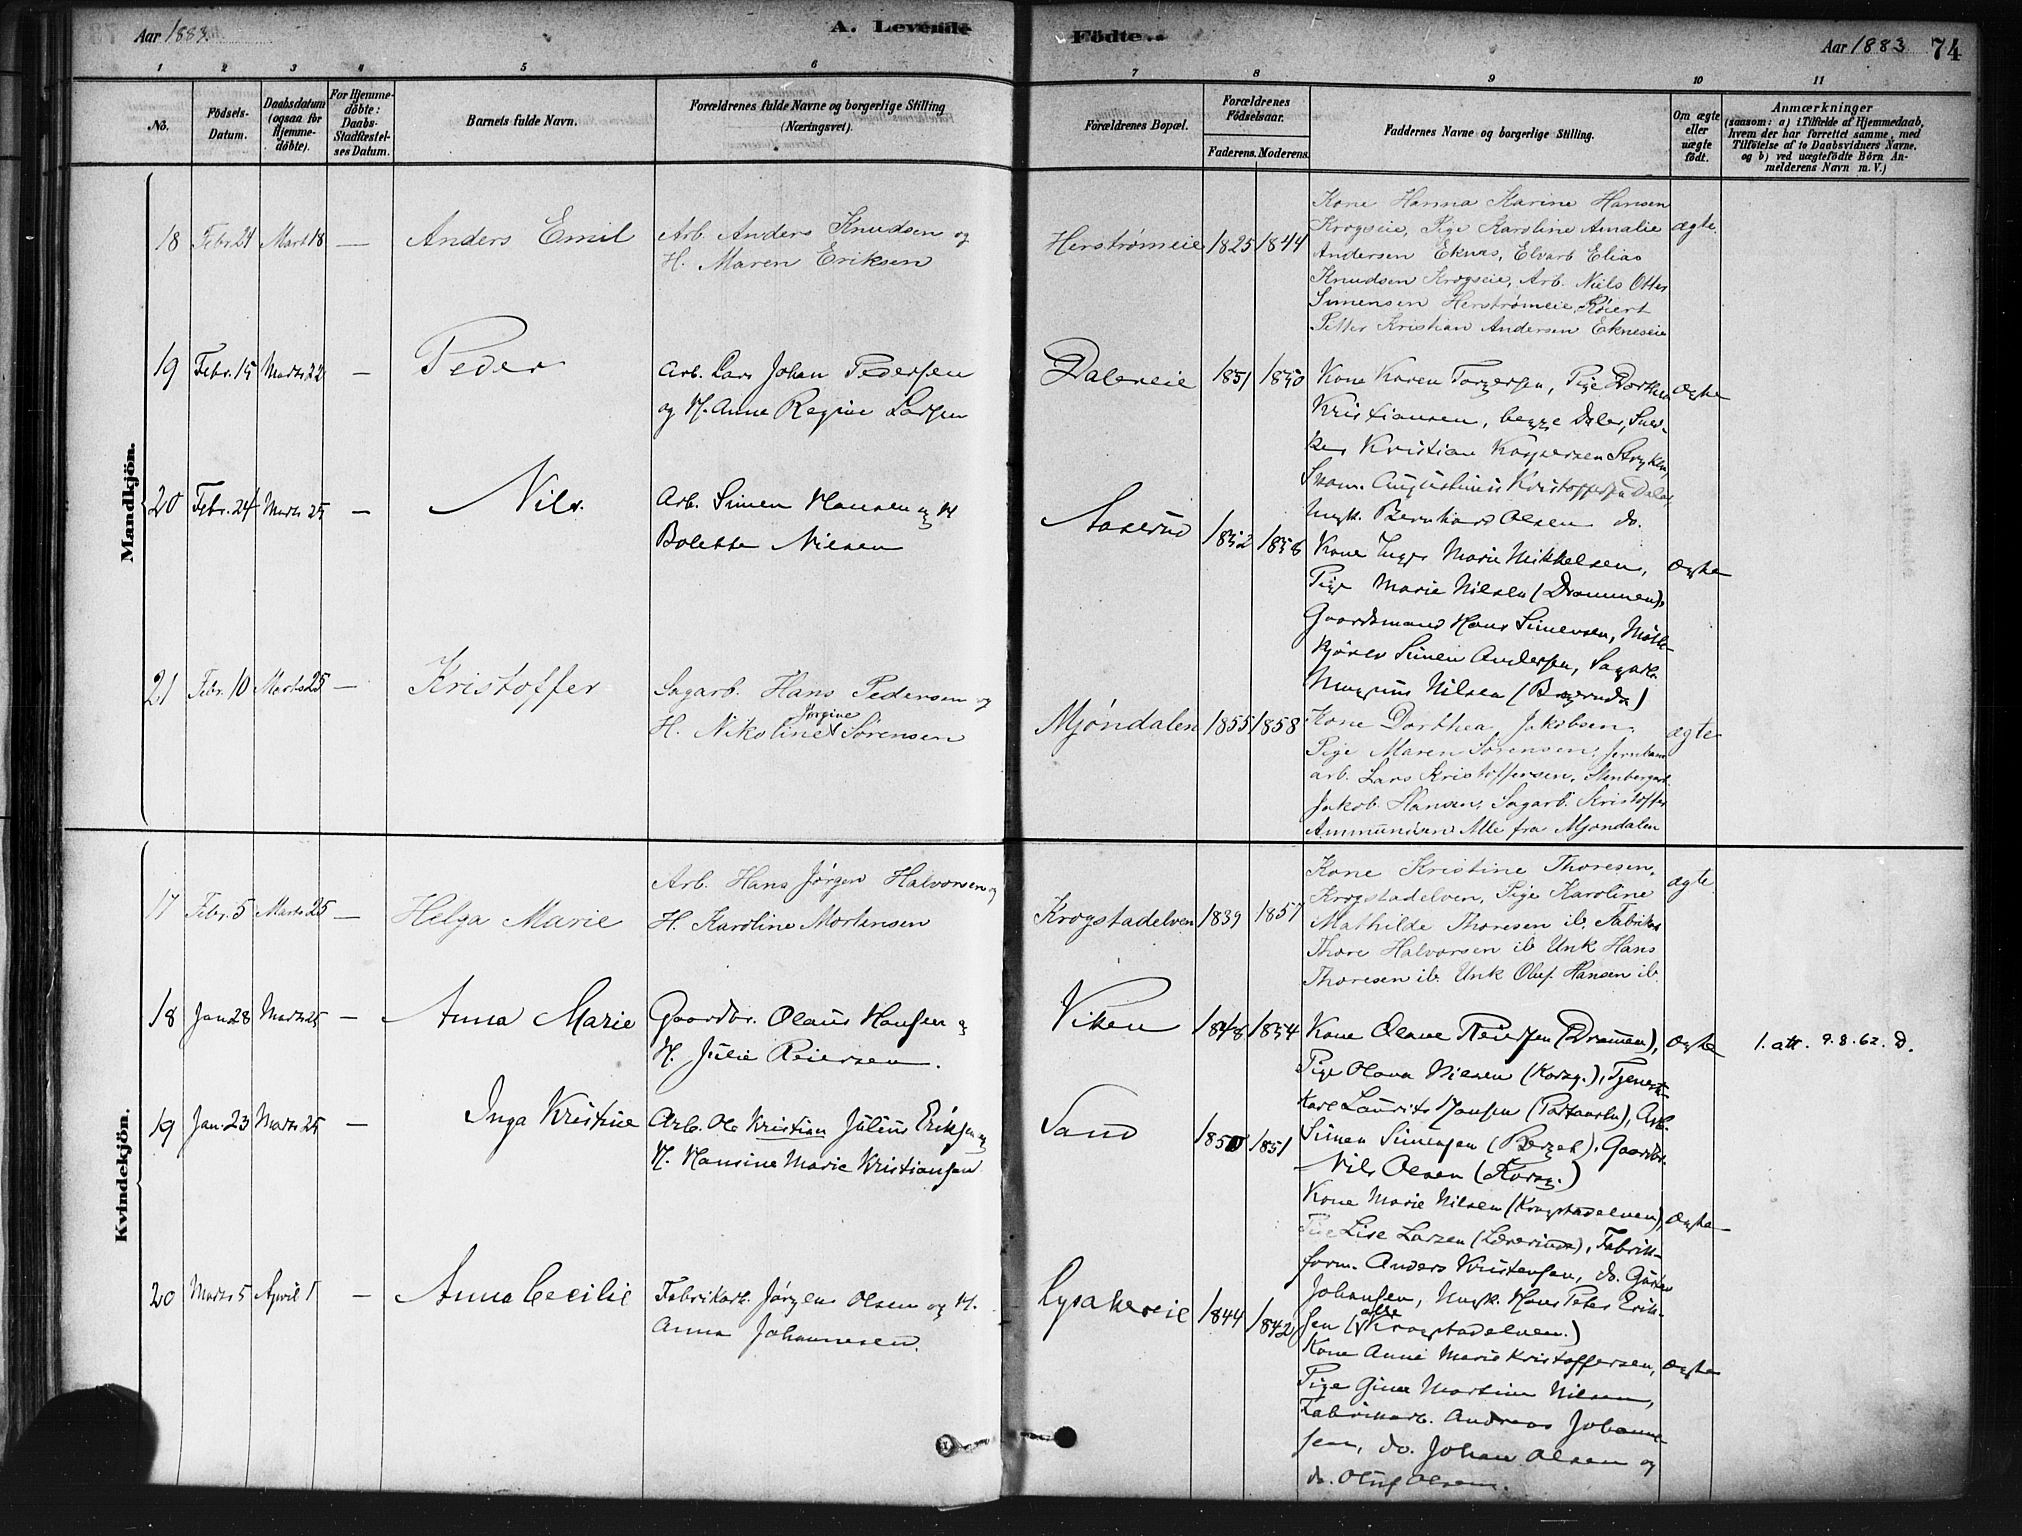 Aar 1883.
A. Levende
Födte..
Aar 1883
74
1 2 3 4 5 6 7 8 9 10 11
No.
Födsels-
Datum.
Daabsdatum
(ogsaa for
Hjemme-
döbte).
For Hjemme-
döbte:
Daabs-
Stadfæstel-
ses Datum.
Barnets fulde Navn.
Forældrenes fulde Navne og borgerlige Stilling
(Næringsvei).
Forældrenes Bopæl.
Forældrenes
Födselsaar.
Faderens. Moderens.
Faddernes Navne og borgerlige Stilling.
Om ægte
eller
uægte
födt.
Anmærkninger
(saasom: a) i Tilfælde af Hjemmedaab,
hvem der har forrettet samme, med
Tilföielse af to Daabsvidners Navne.
og b) ved uægtefödte Börn An-
melderens Navn m. V.)
Mandkjön.
18 Febr. 24 Marts 18 — Anders Emil
Arb. Anders Knudsen og
H. Maren Eriksen
Herstrømeie 1825 1844
Kone Hanna Karine Hansen
Krogseie, Pige Karoline Amalie
Andersen Eknes, Elvarb Elias
Knudsen Krogseie, Arb. Niels Otter
Simensen Herstrømeie,
Petter Kristian Andersen Ekneseie
ægte.
19 Febr. 15 Marts 22 — Peder
Arb. Lars Johan Pedersen
og H. Anne Regine Larsen
Dalereie 1851 1850
Kone Karen Torgersen, Pige Dorthea
Kristiansen, begge Daler, Sned-
ker Kristian Kaspersen Stryken,
Skom. Augustinus Kristoffersen Daler,
Ungk. Bernhard Olsen do.
Ægte
20 Febr. 24 Marts 25 — Nils.
Arb. Simen Hansen og H
Bolette Nilsen
Aaserud 1852 1856
Kone Inger Marie Mikkelsen,
Pige Marie Nilsen (Drammen),
Gaardmand Hans Simensen,
Simen Andersen, Sagarb.
Magnus Nilsen
Ægte
21 Febr. 10 Marts 25 — Kristoffer
Sagarb. Hans Pedersen og
Jørgine
H. Nikoline Sørensen
Mjøndalen 1855 1858
Kone Dorthea Jakobsen,
Pige Maren Sørensen, Jernban
arb. Lars Kristoffersen, Stenbergarb
Jakob Hansen, Sagarb. Kristoffer
Ammundsen Alle fra Mjøndalen
ægte
Kvindekjön.
17 Febr. 5 Marts 25 — Helga Marie
Arb. Hans Jørgen Halvorsen og
H. Karoline Mortensen
Krogstadelven 1839 1857
Kone Kristine Thoresen,
Krogstadelven, Pige Karoline
Mathilde Thoresen ib, Fabrikarb
Thore Halvorsen ib Unk Hans
Thoresen ib. Unk Oluf Hansen ib.
ægte
18 Jan. 28 Marts 25 — Anna Marie
Gaardbr. Olaus Hansen og
H. Julie Reiersen.
Viken 1848 1854
Kone Olave Reiersen (Drammen),
Pige Olava Nilsen (Korsg.), Tjeneste
karl Laurits Hansen, Arb.
Simen Simensen (Berget), Gaardbr.
Nils Olsen (Korsg.)
Ægte
1. att. 9.8.62. D.
19 Jan. 23 Marts 25 — Inga Kristine
Arb. Ole Kristian Julius Eriksen og
H. Hansine Marie Kristiansen
Sand 1850 1851
Kone Marie Nilsen (Krogstadelven),
Pige Lise Larsen (Lærerinde), Fabrik-
form. Anders Kristensen, do. Gustav
Johansen, Ungk. Hans Peter Erik-
alle
sen (Krogstadelven.)
Ægte
20 Marts 5 April 1 — Anna Cecilie
Fabrikarb. Jørgen Olsen og H.
Anna Johannesen.
Lysakereie 1844 1842
Kone Anne Marie Kristoffersen,
Pige Gina Martine Nilsen,
Fabrikarb. Andreas Johanne-
sen, do. Johan Olsen og
do. Oluf Olsen.
Ægte